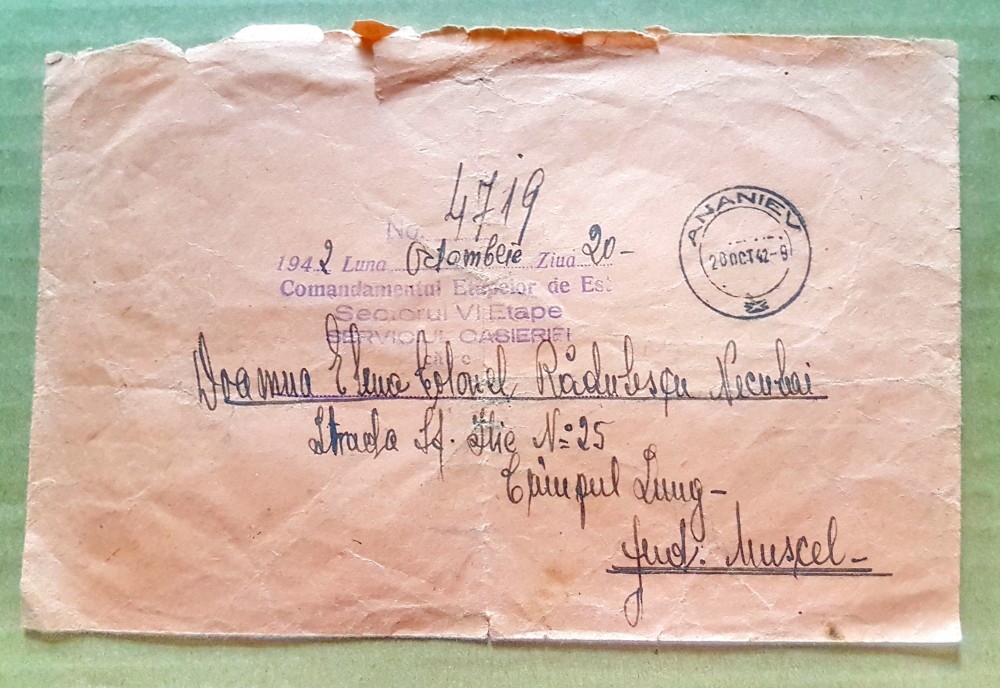 No. 4719
1942 Luna Octombrie Ziua 20-
Comandamentul Etapelor de Est
Sectorul VI Etape
SERVICIUL CASIERIEI
către
ANANIEV
20 OCT 42-9
Doamna Elena Colonel Rădulescu Neculai
Strada Sf. Ilie No 25
Câmpul Lung-
Jud. Muscel-